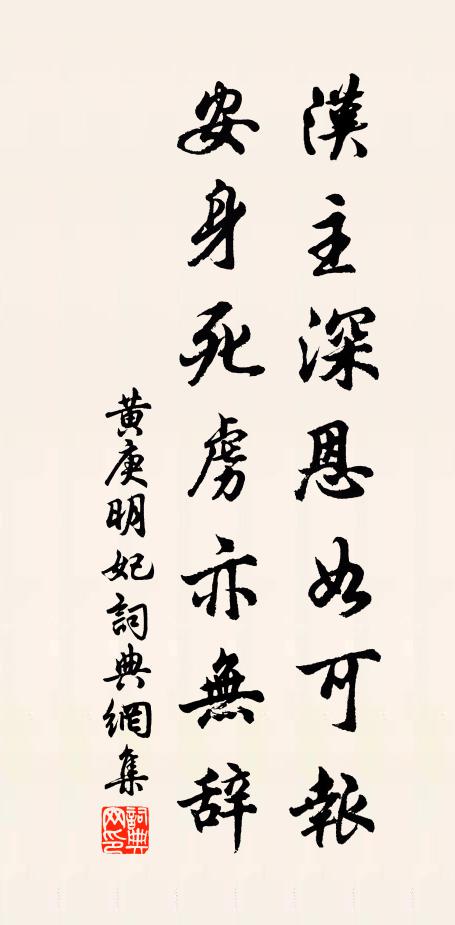 漢主深恩如可報
妾身死虜亦無辞
黃庚明妃詞典網集
詞典网印